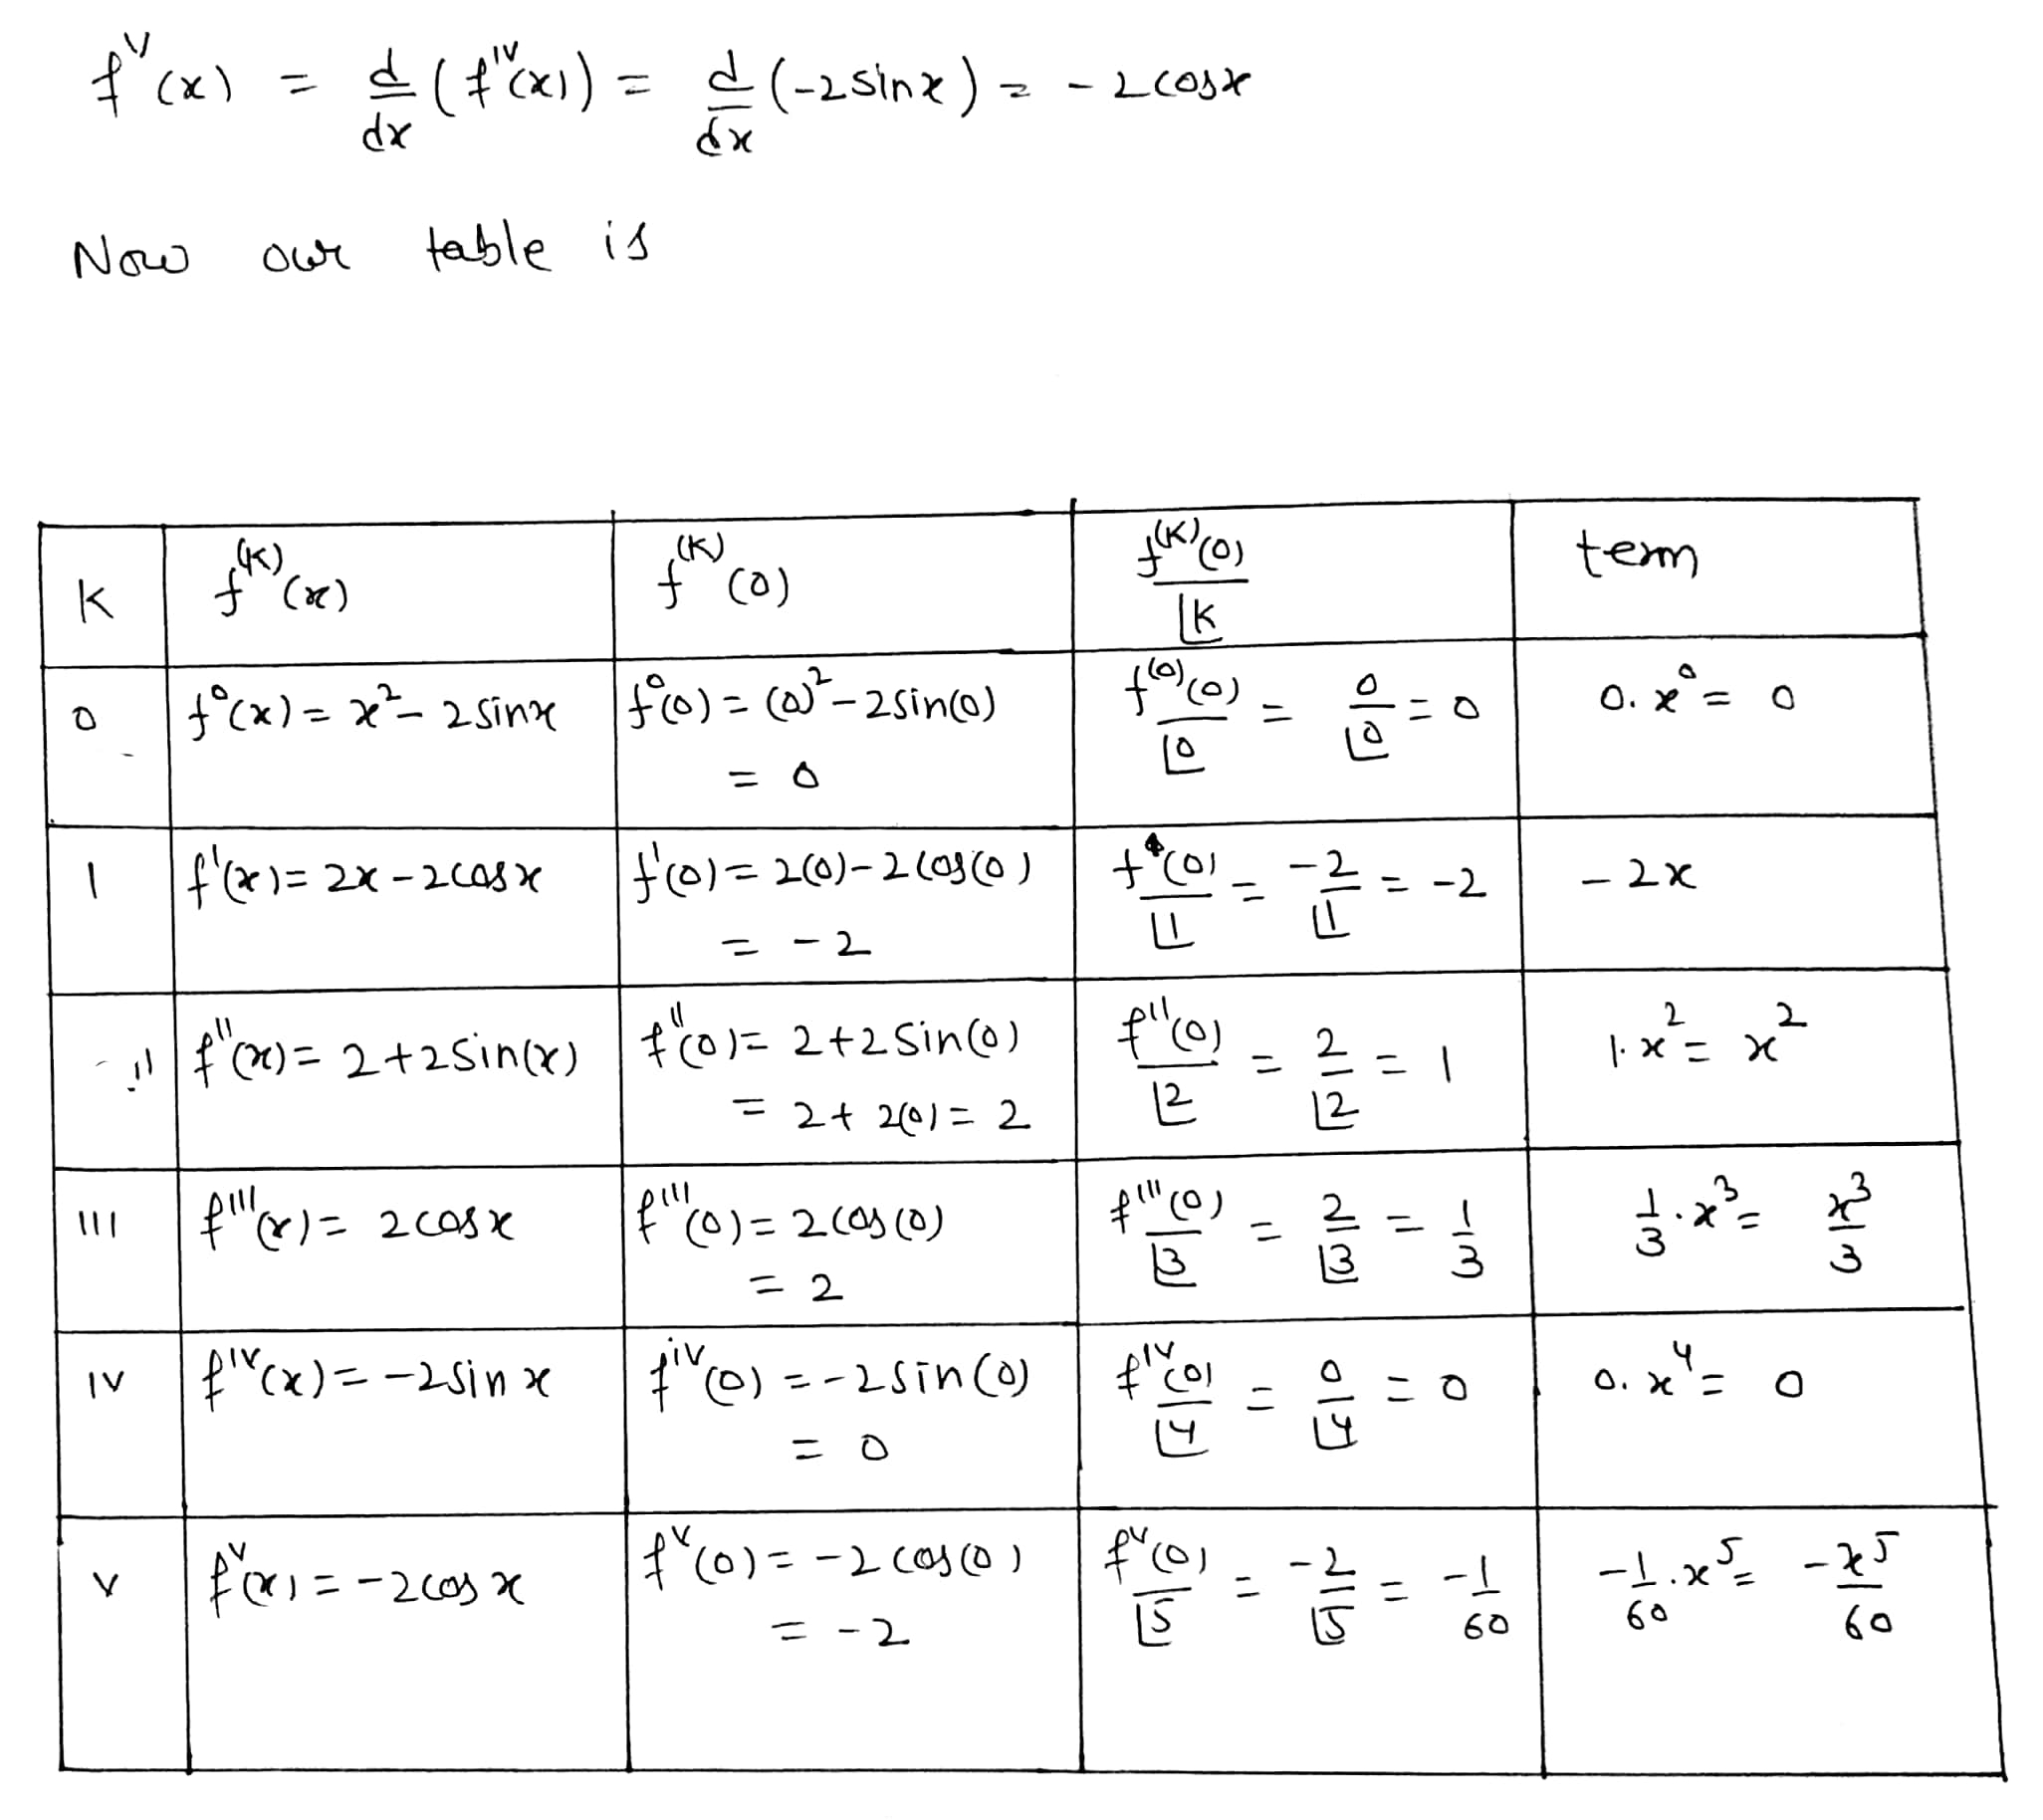 f^v(x) = d/dx (f^iv(x)) = d/dx (-2sinx) = -2cosx
Now our table is
K | f^(K)(x) | f^(K)(0) | f^(K)(0)/⌊K | term
0 | f^0(x) = x^2 - 2sinx | f^0(0) = (0)^2 - 2sin(0) = 0 | f^(0)(0)/⌊0 = 0/⌊0 = 0 | 0.x^0 = 0
I | f'(x) = 2x - 2cosx | f'(0) = 2(0) - 2cos(0) = -2 | f'(0)/⌊1 = -2/⌊1 = -2 | -2x
II | f''(x) = 2+2Sin(x) | f''(0) = 2+2Sin(0) = 2+2(0) = 2 | f''(0)/⌊2 = 2/⌊2 = 1 | 1.x^2 = x^2
III | f'''(x) = 2cosx | f'''(0) = 2cos(0) = 2 | f'''(0)/⌊3 = 2/⌊3 = 1/3 | 1/3.x^3 = x^3/3
IV | f^iv(x) = -2sinx | f^iv(0) = -2sin(0) = 0 | f^iv(0)/⌊4 = 0/⌊4 = 0 | 0.x^4 = 0
V | f^v(x) = -2cosx | f^v(0) = -2cos(0) = -2 | f^v(0)/⌊5 = -2/⌊5 = -1/60 | -1/60.x^5 = -x^5/60